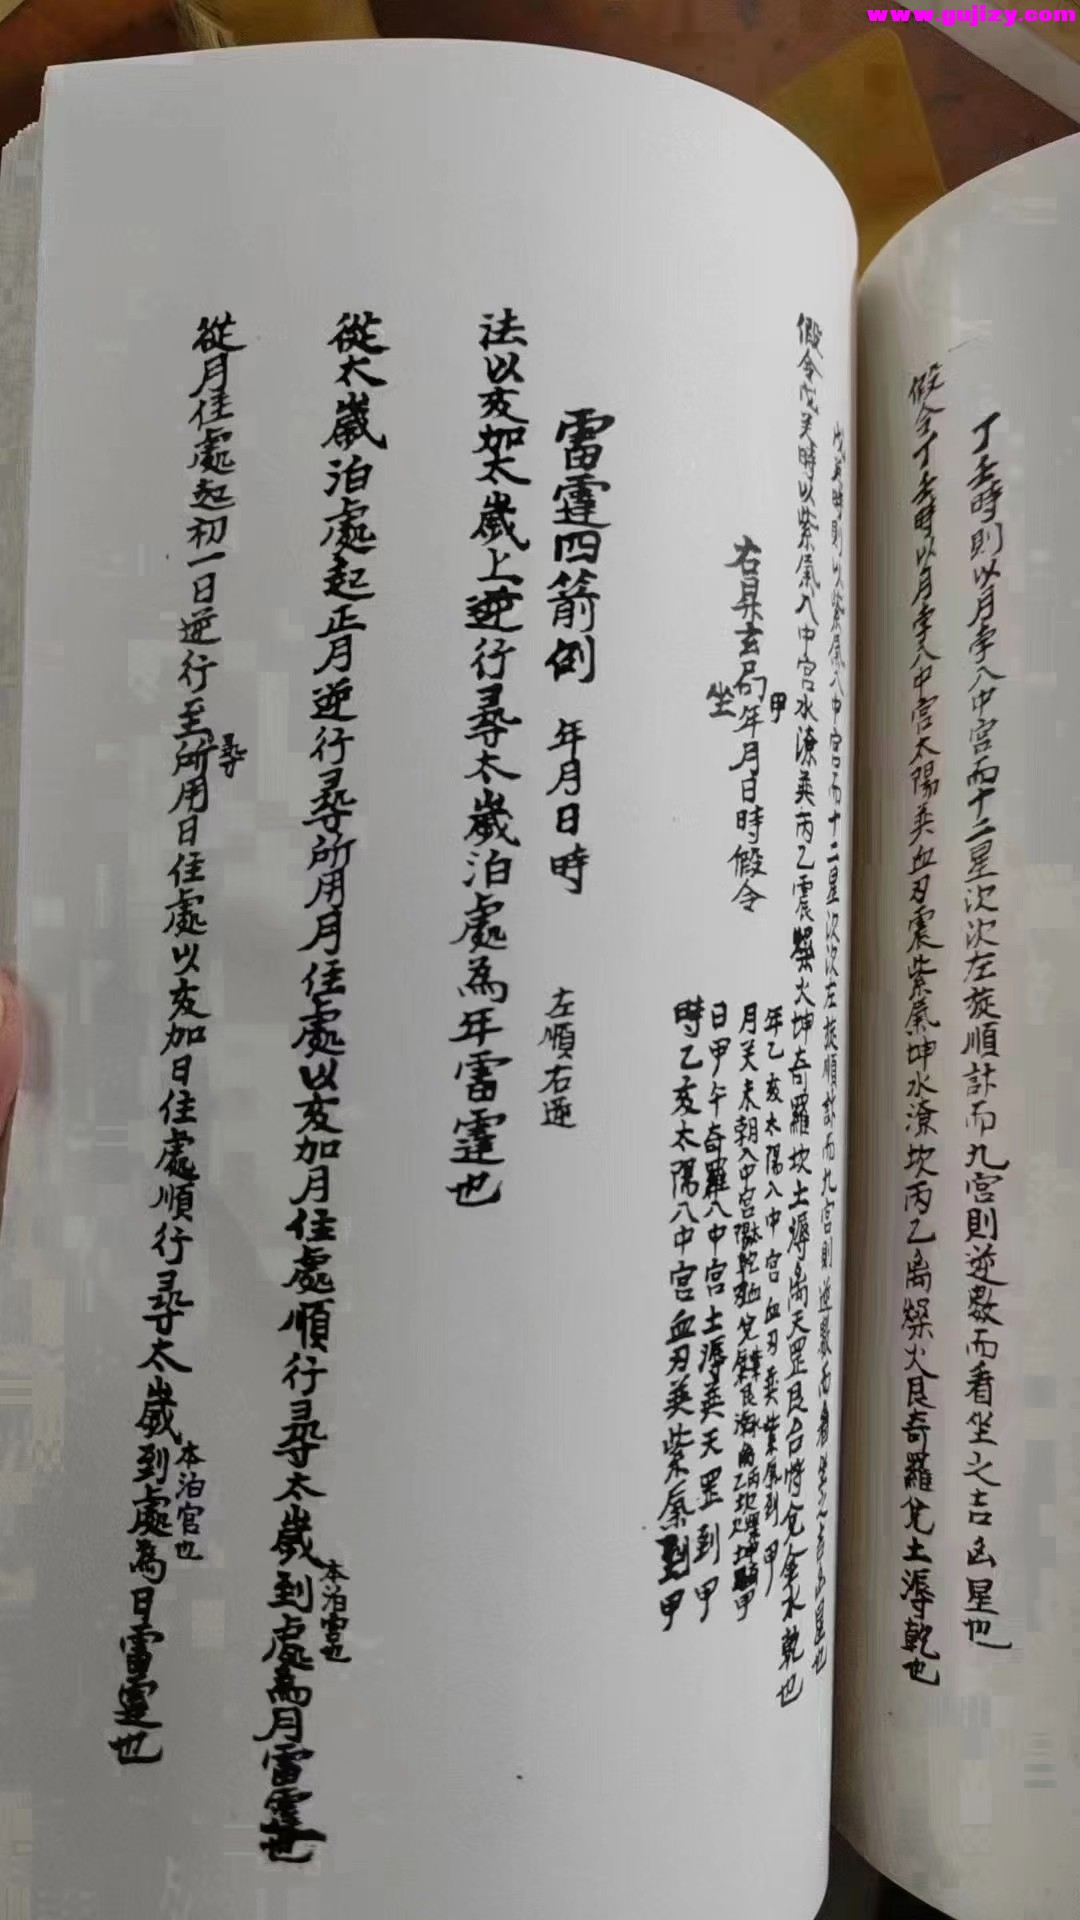 www.gujizy.com
丁壬時則以月孛入中宮而十二星次次左旋順計而九宮則逆數而看坐之吉凶星也
假令丁壬時以月孛入中宮太陽巽血刃震紫氣坤水潦坎丙乙离燥火艮奇羅兌土溽乾也
戊癸時則以紫氣入中宮而十二星次次左旋順計而九宮則逆數而看坐之吉凶星也
假令戊癸時以紫氣入中宮水潦巽丙乙震燥火坤奇羅坎土溽离天罡艮台將兌金水乾也
右昇玄局坐甲年月日時假令
年乙亥太陽入中宮血刃巽紫氣到甲
月癸未朝入中宮
日甲午奇羅入中宮土溽巽天罡到甲
時乙亥太陽入中宮血刃巽紫氣到甲
雷霆四箭例 年月日時 左順右逆
法以亥加太歲上逆行尋太歲泊處為年雷霆也
從太歲泊處起正月逆行尋所用月住處以亥加月住處順行尋太歲到處本泊宮也為月雷霆也
從月住處起初一日逆行至尋所用日住處以亥加日住處順行尋太歲到處本泊宮也為日雷霆也